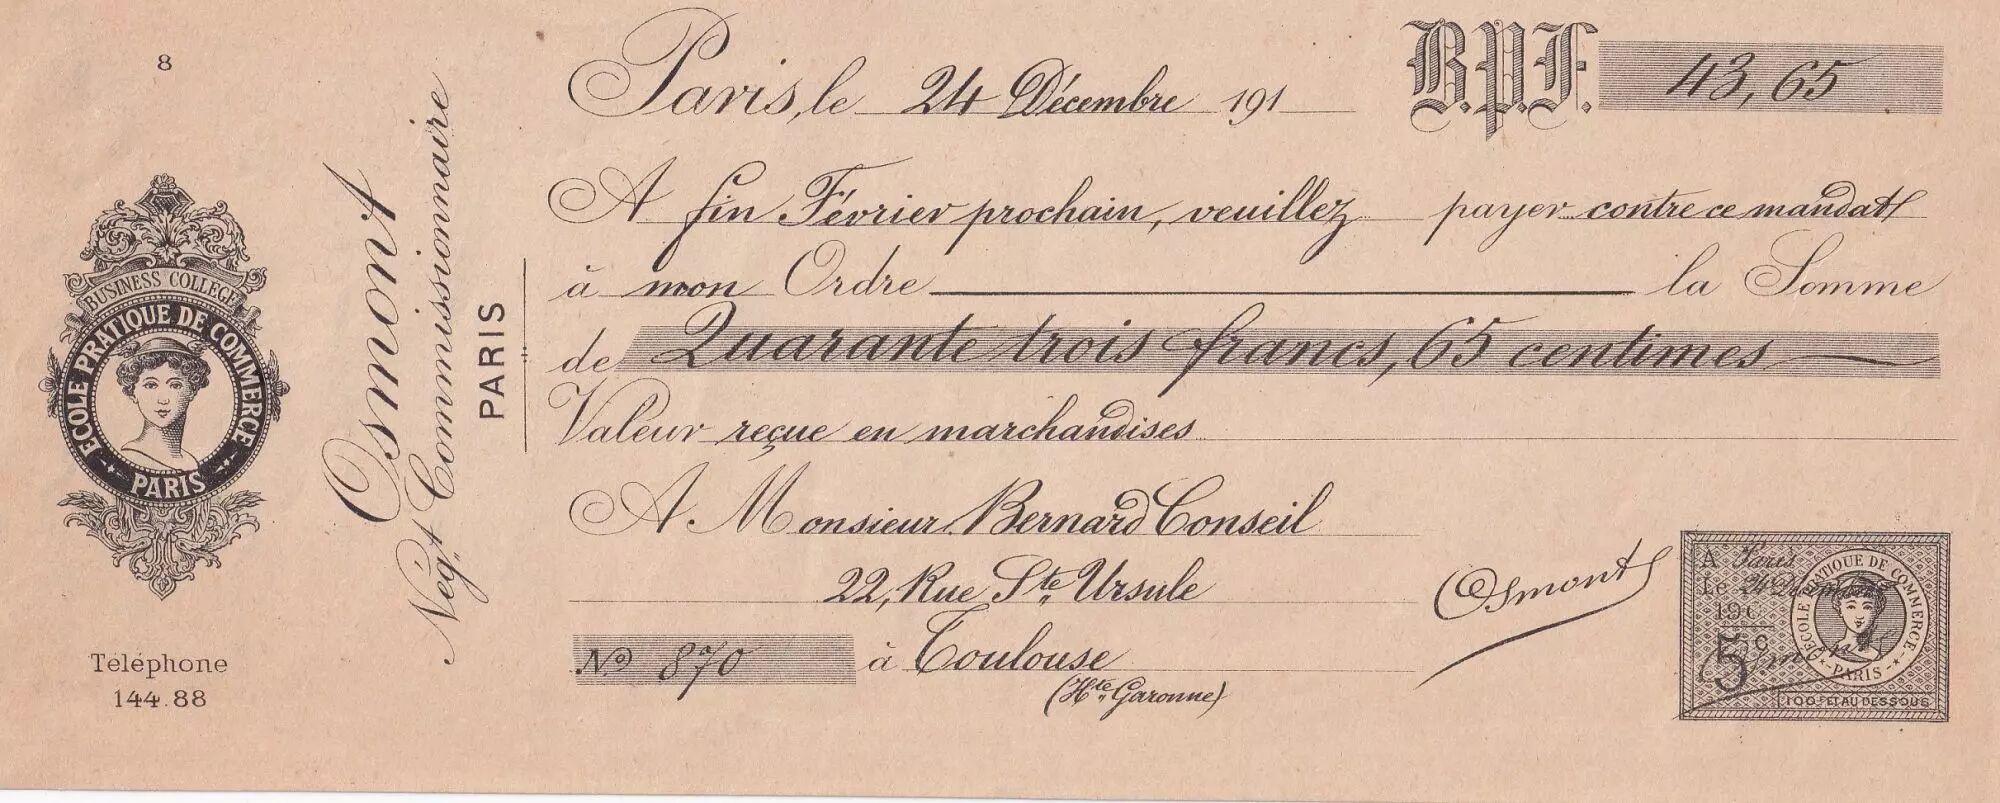 8
BUSINESS COLLEGE
ECOLE PRATIQUE DE COMMERCE
PARIS
Téléphone
144.88
Osmont
Négt Commissionnaire
PARIS
Paris, le 24 Décembre 191
B.P.F. 43,65
A fin Février prochain, veuillez payer contre ce mandat
à mon Ordre la Somme
de Quarante trois francs, 65 centimes
Valeur reçue en marchandises
A Monsieur Bernard Conseil
22, Rue Ste Ursule
No 870 à Toulouse
(Hte Garonne)
Osmont
A Paris
Le 24 Décembre
19
5c
ECOLE PRATIQUE DE COMMERCE
PARIS
100F ET AU DESSOUS